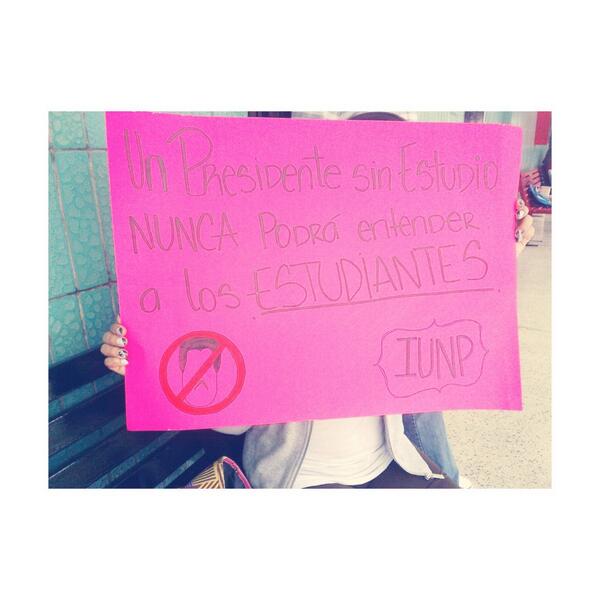 Un Presidente sin Estudio
NUNCA PODRÁ entender
a los ESTUDIANTES.
IUNP